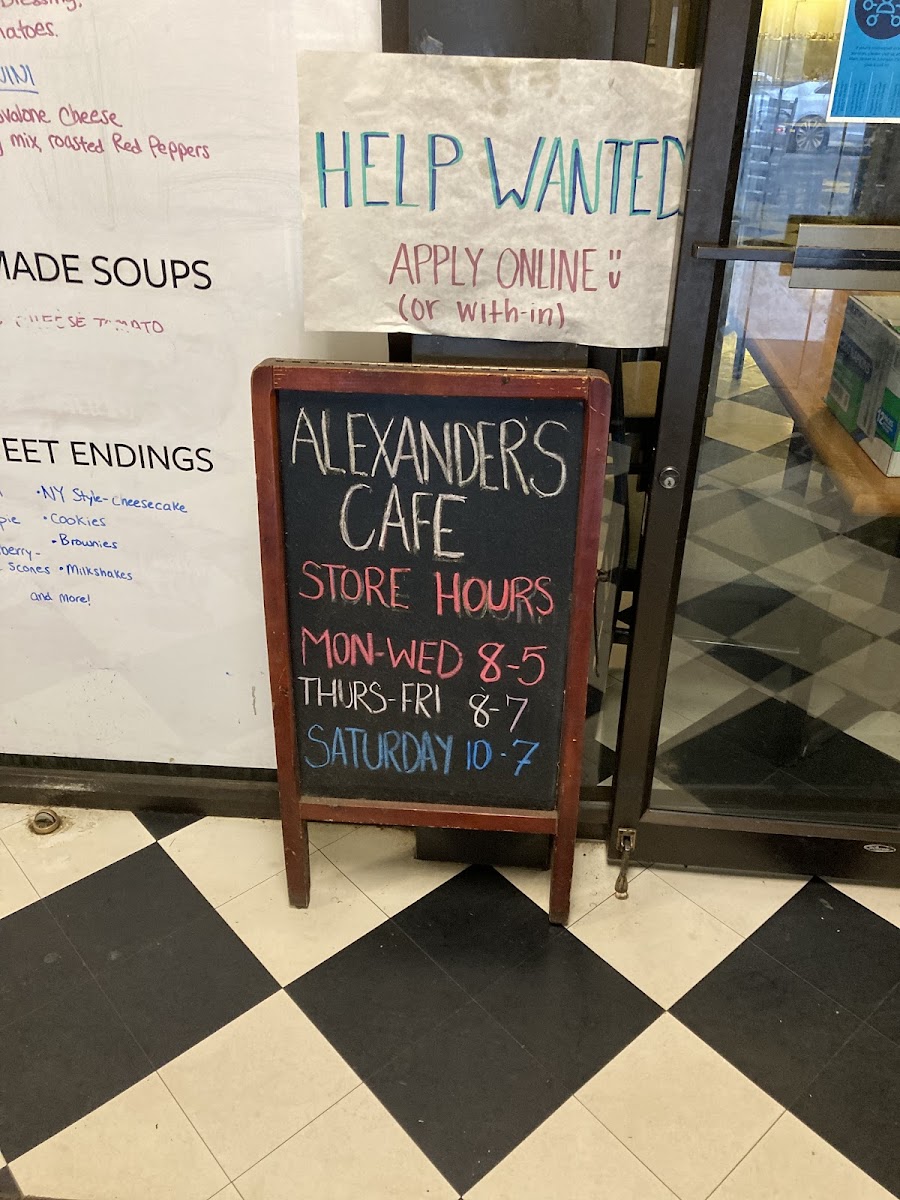 matoes.
ovalone Cheese
mix, roasted Red Peppers
MADE SOUPS
CHEESE TOMATO
EET ENDINGS
•NY Style-cheesecake
pie •Cookies
•Brownies
berry-
scones •Milkshakes
and more!
HELP WANTED
APPLY ONLINE
(or with-in)
ALEXANDER'S
CAFE
STORE HOURS
MON-WED 8-5
THURS-FRI 8-7
SATURDAY 10-7